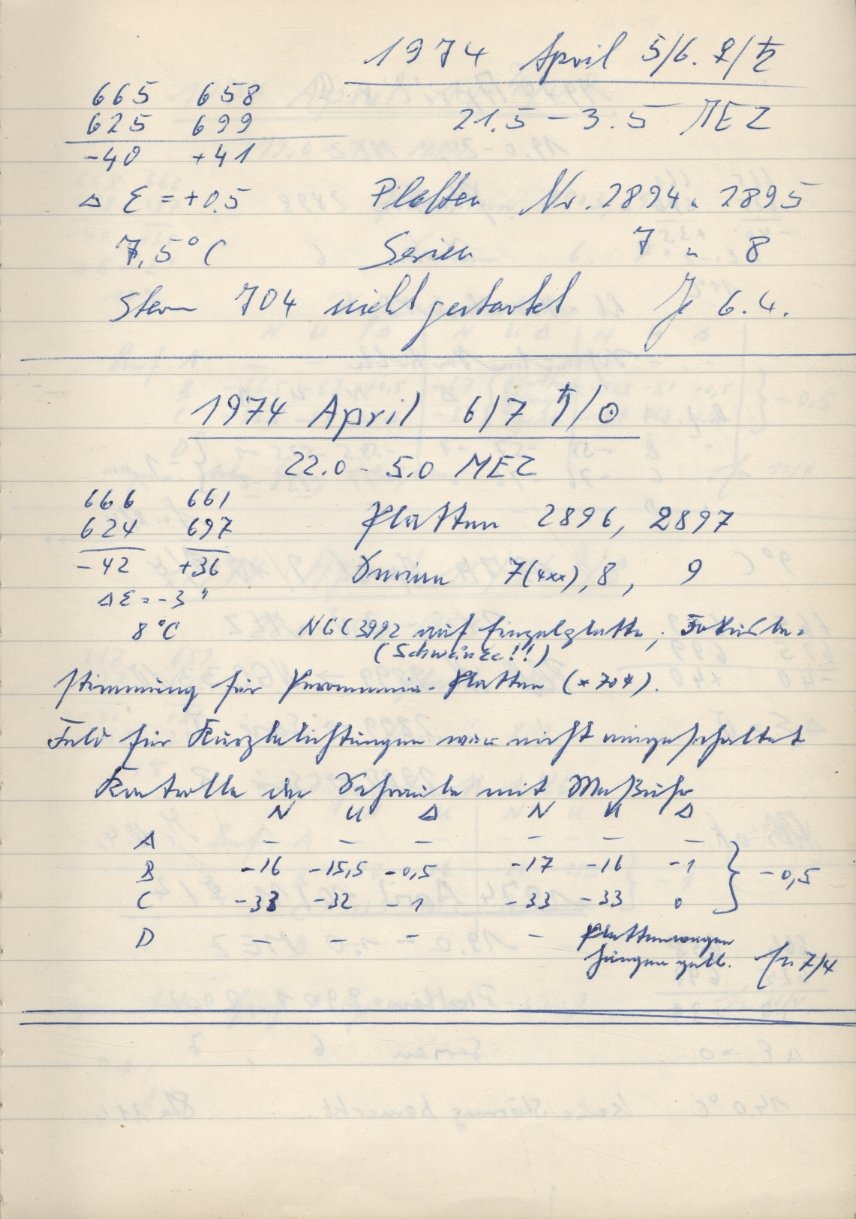 1974 April 5/6. ♀/♄
665 658
21.5 – 3.5 MEZ
625 699
-40 +41
Δ ε = +0.5 Platten Nr. 2894 u 2895
7,5°C Serien 7 u 8
Stern 704 nicht gestartet 6.4.
1974 April 6/7 ♄/☉
22.0 – 5.0 MEZ
666 661
624 697 Platten 2896, 2897
-42 +36 Serien 7(4xx), 8, 9
Δ ε = -3"
8°C NGC 3992 auf Einzelplatte, Fokusbe=
(Schwänze!!)
stimmung für Platten (*704).
Feld für Kurzbelichtungen war nicht eingeschaltet
Kontrolle der Schraube mit Meßuhr
N U Δ N U Δ
A – – – – – –
B -16 -15,5 -0,5 -17 -16 -1 } -0,5
C -33 -32 -1 -33 -33 0
D – – – – Plattenwagen
7/4